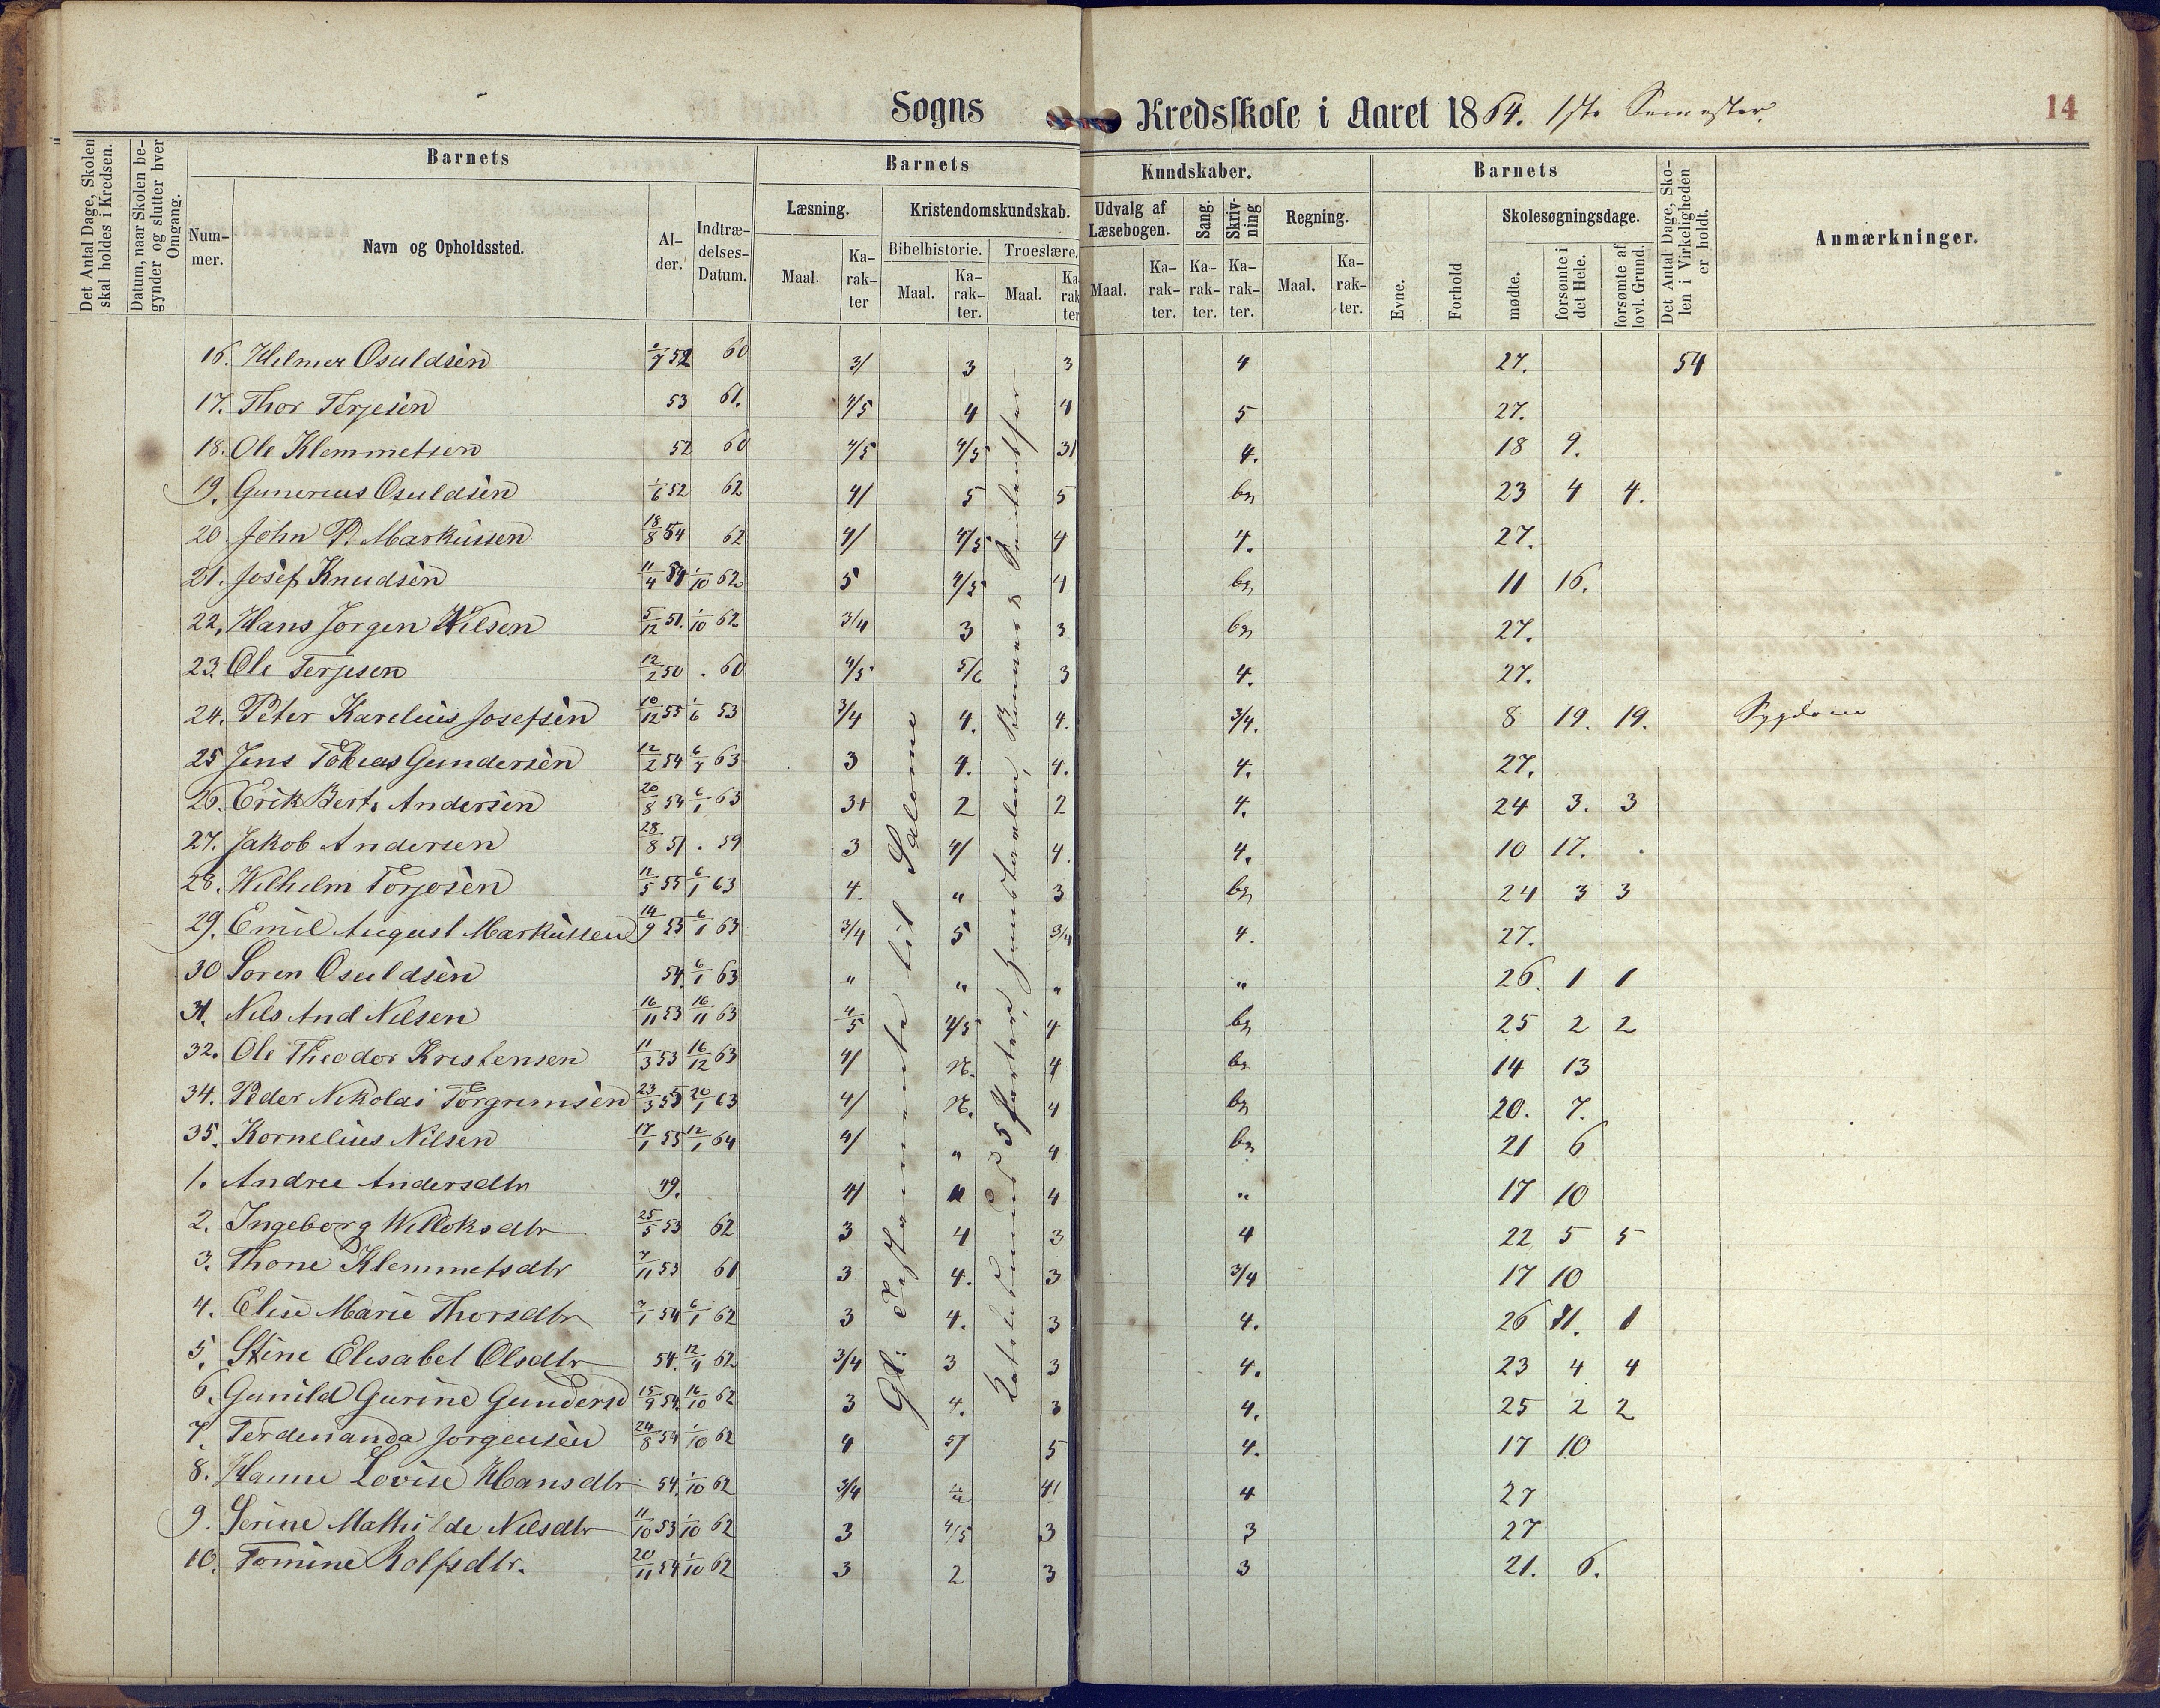 Sogns Kredsskole i Aaret 1864. 1ste Semester. 14
Det Antal Dage, Skolen skal holdes i Kredsen.
Datum, naar Skolen begynder og slutter hver Omgang.
Barnets
Nummer.
Navn og Opholdssted.
Alder.
Indtrædelses-Datum.
Barnets Kundskaber.
Læsning.
Maal. Karakter
Kristendomskundskab.
Bibelhistorie. Troeslære.
Maal. Karakter. Maal. Karakter
Udvalg af Læsebogen.
Maal. Karakter.
Sang. Karakter.
Skrivning Karakter.
Regning.
Maal. Karakter.
Barnets
Evne. Forhold
Skolesøgningsdage.
mødte. forsømte i det Hele. forsømte af lovl. Grund.
Det Antal Dage, Skolen i Virkeligheden er holdt.
Anmærkninger.
16. Hilmer Osuldsen 52 60 3/ 3 3 4 27. 54
17. Thor Terjesen 53 61. 4/5 4 4 5 27.
18. Ole Klemmetsen 52 60 4/5 4/5 3/ 4. 18 9.
19. Gunerius Osuldsen 1/6 52 62 4/ 5 5 bg 23 4 4.
20. John P. Markussen 18/8 54 62 4/ 4/5 4 4. 27.
21. Josef Knudsen 11/4 54 1/10 62 5 4/5 4 bg 11 16.
22. Hans Jørgen Nilsen 5/12 51. 1/10 62 3/4 3 3 bg 27.
23. Ole Terjesen 12/2 50 . 60 4/5 5/6 3 4. 27.
24. Peter Karelius Josefsen 10/12 55 1/6 53 3/4 4. 4. 3/4. 8 19. 19. Sygdom
25 Jens Tobias Gundersen 12/2 54 63 3 4. 4. 4. 27.
26. Erik Bert. Andersen 20/8 54 6/1 63 3+ 2 2 4. 24 3. 3
27. Jakob Andersen 28/8 51 . 59 3 4/ 4. 4. 10 17.
28. Wilhelm Torjesen 12/5 55 6/1 63 4. " 3 bg 24 3 3
29. Emil August Markussen 14/9 53 6/1 63 3/4 5 3/4 4. 27.
30 Søren Osuldsen 54. 6/1 63 " " " " 26. 1 1
31. Nils And Nilsen 16/11 53 16/11 63 4/5 4/5 4 bg 25 2 2
32. Ole Theodor Kristensen 11/3 53 16/12 63 4/ N. 4 bg 14 13
34. Peder Nikolai Torgrimsen 23/3 55 20/1 63 4/ N. 4 bg 20. 7.
35. Kornelius Nilsen 17/1 55 12/1 64 4/ " 4 bg 21 6
1. Andree Andersdtr 49. 4/ 4 " 17 10
2. Ingeborg Willoksdtr 25/5 53 62 3 4 3 4 22 5 5
3. Thone Klemmetsdtr 7/11 53 61 3 4. 3 3/4 17 10
4. Elise Marie Thorsdtr 7/1 54 6/1 62 3 4. 3 4. 26 1. 1
5. Stine Elisabet Olsdtr 54. 12/4 62 3/4 3 3 4. 23 4 4
6. Gunild Gurine Gundersd 15/9 54. 16/10 62 3 4. 3 4. 25 2 2
7. Ferdenanda Jørgensen 24/8 54 1/10 62 4 5/ 5 4. 17 10
8. Hanne Lovise Hansdtr 54. 1/10 62 3/4 4/ 4 27
9. Serine Mathilde Nilsdtr 11/10 53 1/10 62 3 4/5 3 3 27
10. Tomine Rolfsdtr. 20/11 54 1/10 62 3 2 3 3 21. 6.
Gl: Testamente til Salomo